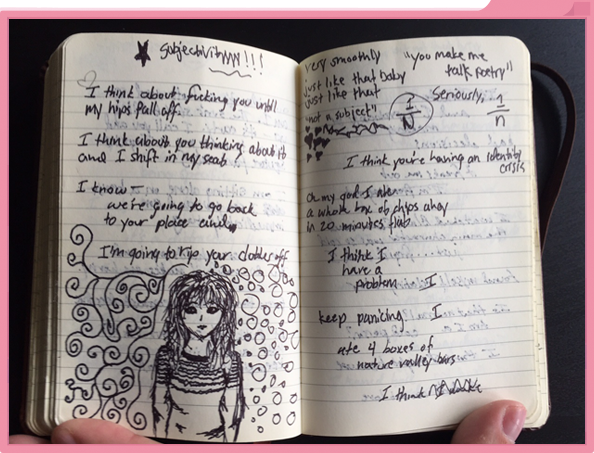 ★ SubjectivityNN!!!
I think about fucking you until
my hips fall off.
I think about you thinking about it
and I shift in my seat
I know —
we're going to go back
to your place and
I'm going to rip your clothes off
very smoothly
just like that baby
just like that
"not a subject"
"you make me
talk poetry"
1/N
Seriously, 1/n
I think you're having an identity
crisis
Oh my god I ate
a whole box of chips ahoy
in 20 minutes flat
I think I
have a
problem I
keep panicing I
ate 4 boxes of
nature valley bars
I think